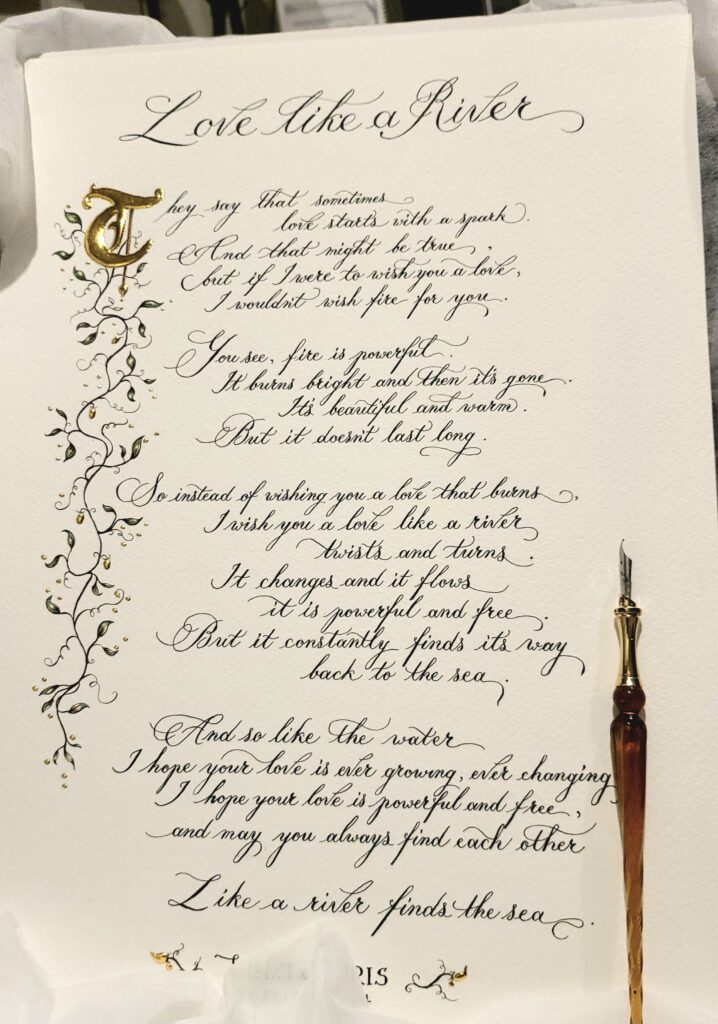 Love like a River
They say that sometimes
love starts with a spark.
And that might be true,
but if I were to wish you a love,
I wouldn't wish fire for you.
You see, fire is powerful.
It burns bright and then it's gone.
It's beautiful and warm.
But it doesn't last long.
So instead of wishing you a love that burns,
I wish you a love like a river
twists and turns.
It changes and it flows
it is powerful and free.
But it constantly finds it's way
back to the sea.
And so like the water
I hope your love is ever growing, ever changing
I hope your love is powerful and free,
and may you always find each other
Like a river finds the sea.